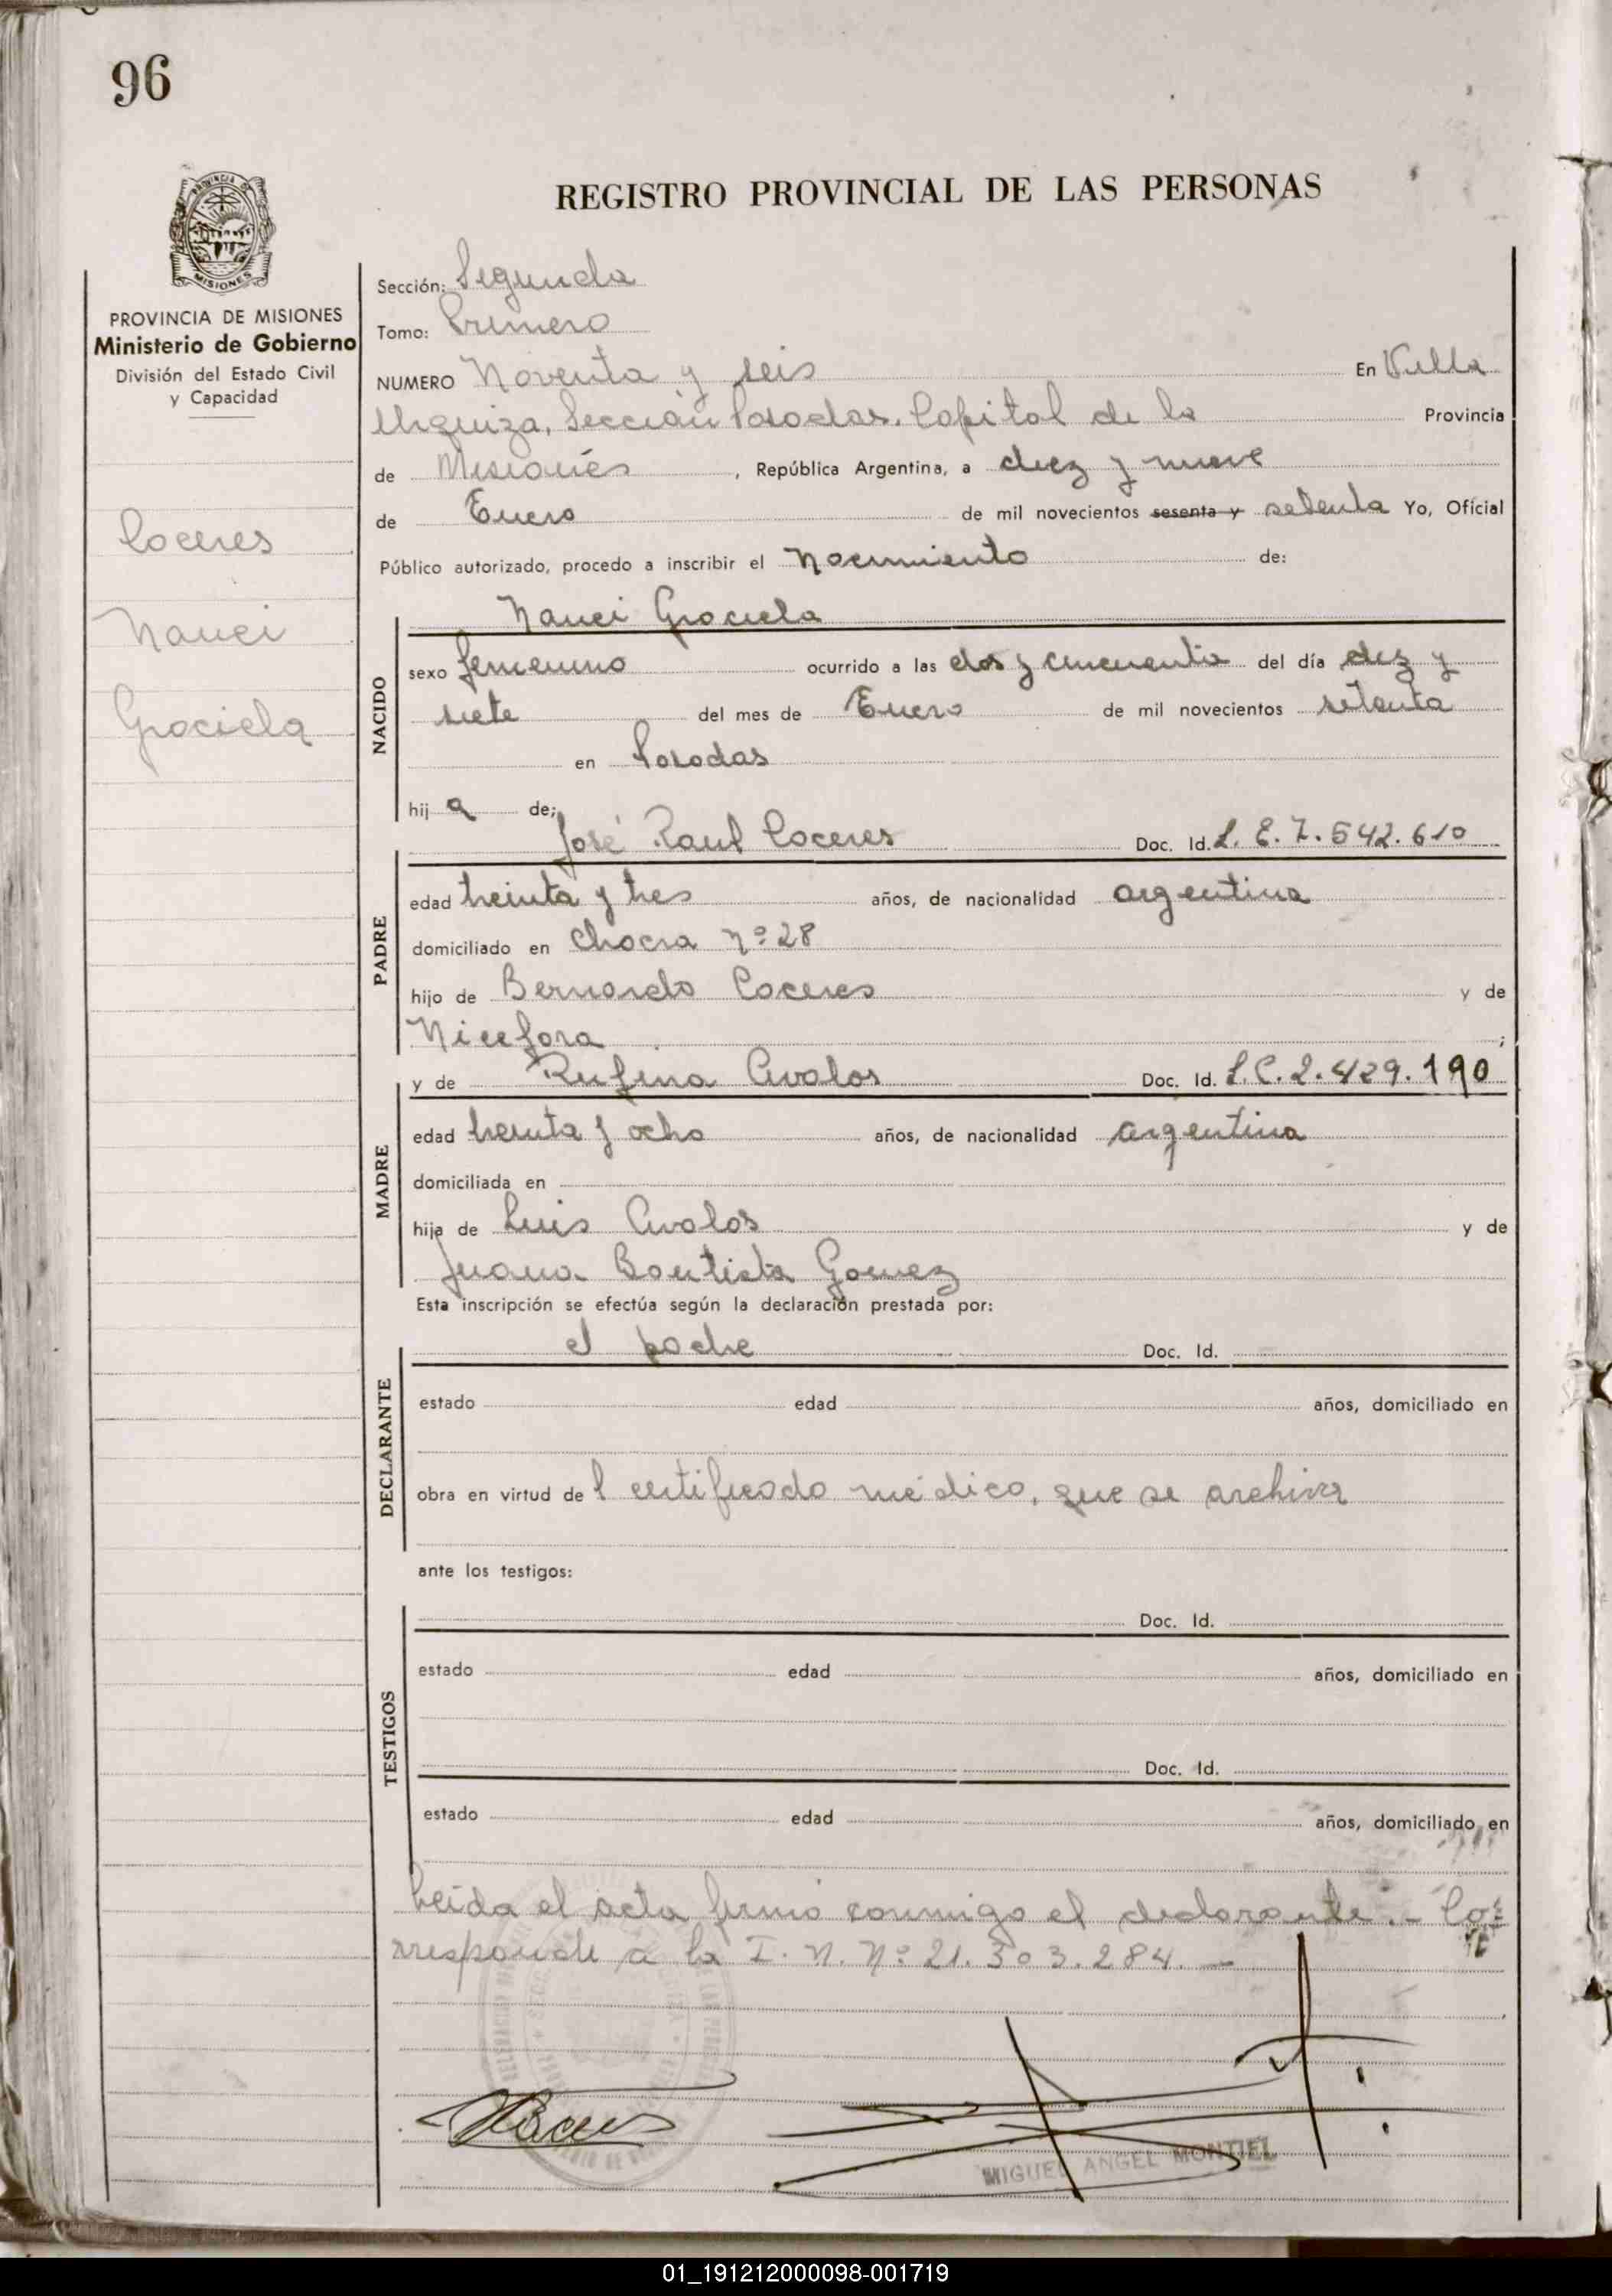 96
REGISTRO PROVINCIAL DE LAS PERSONAS
PROVINCIA DE MISIONES
MISIONES
PROVINCIA DE MISIONES
Ministerio de Gobierno
División del Estado Civil
y Capacidad
Coceres
Nanci
Graciela
Sección: Segunda
Tomo: Primero
NUMERO Noventa y seis En Villa
Urquiza, Sección Posadas. Capital de la Provincia
de Misiones, República Argentina, a diez y nueve
de Enero de mil novecientos sesenta y setenta Yo, Oficial
Público autorizado, procedo a inscribir el Nacimiento de:
NACIDO
Nanci Graciela
sexo femenino ocurrido a las dos y cincuenta del día diez y
siete del mes de Enero de mil novecientos setenta
en Posadas
hij a de;
PADRE
José Raul Coceres Doc. Id. L. E. 7.542.610
edad treinta y tres años, de nacionalidad argentina
domiciliado en Chacra Nº 28
hijo de Bernardo Coceres y de
Nicefora ;
MADRE
y de Rufina Avalos Doc. Id. L.C. 2.429.190
edad treinta y ocho años, de nacionalidad argentina
domiciliada en
hija de Luis Avalos y de
Juana Bautista Gomez
Esta inscripción se efectúa según la declaración prestada por:
DECLARANTE
el padre Doc. Id.
estado edad años, domiciliado en
obra en virtud de l certificado médico, que se archiva
ante los testigos:
TESTIGOS
Doc. Id.
estado edad años, domiciliado en
Doc. Id.
estado edad años, domiciliado en
Leida el acta firmó conmigo el declarante.- Co=
rresponde a la I. N. Nº 21.303.284.—
MIGUEL ANGEL MONTIEL
01_191212000098-001719